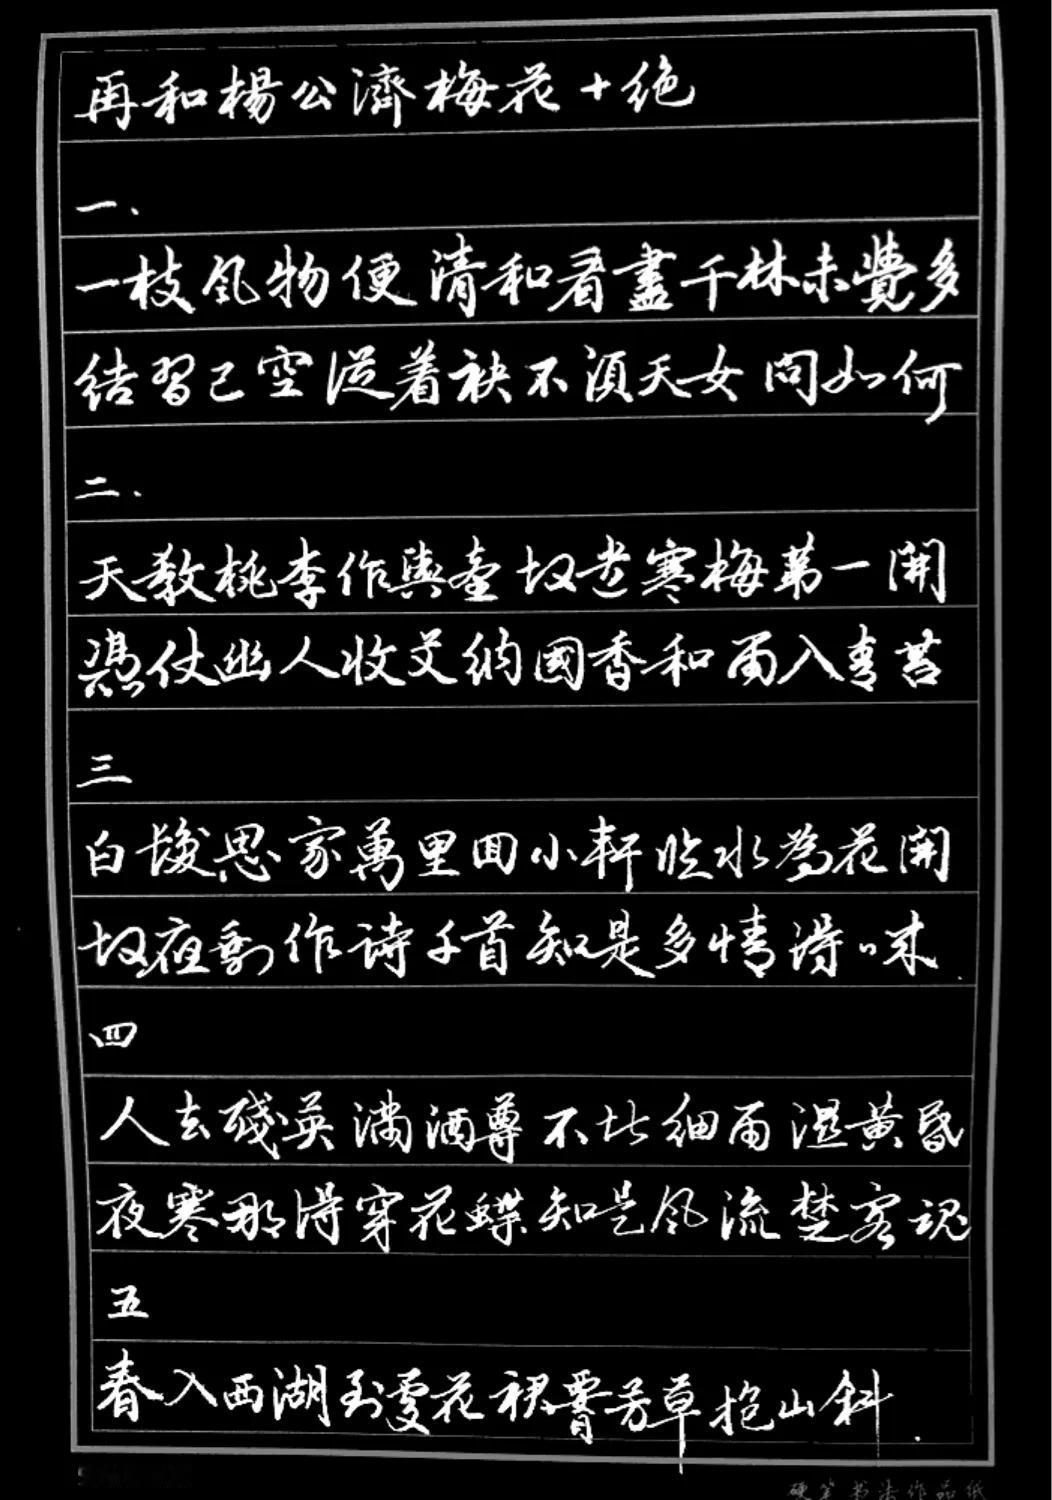 再和楊公濟梅花十绝
一、
一枝风物便清和看盡千林未覺多
结習已空從着袂不須天女問如何
二、
天教桃李作輿臺故遣寒梅第一開
憑仗幽人收艾纳國香和雨入青苔
三
白髮思家萬里回小軒临水為花開
故夜剩作诗千首知是多情得味
四
人去殘英满酒尊不比细雨湿黄昏
夜寒那得穿花蝶知是风流楚客魂
五
春入西湖到處花裙腰芳草抱山斜
硬笔书法作品纸